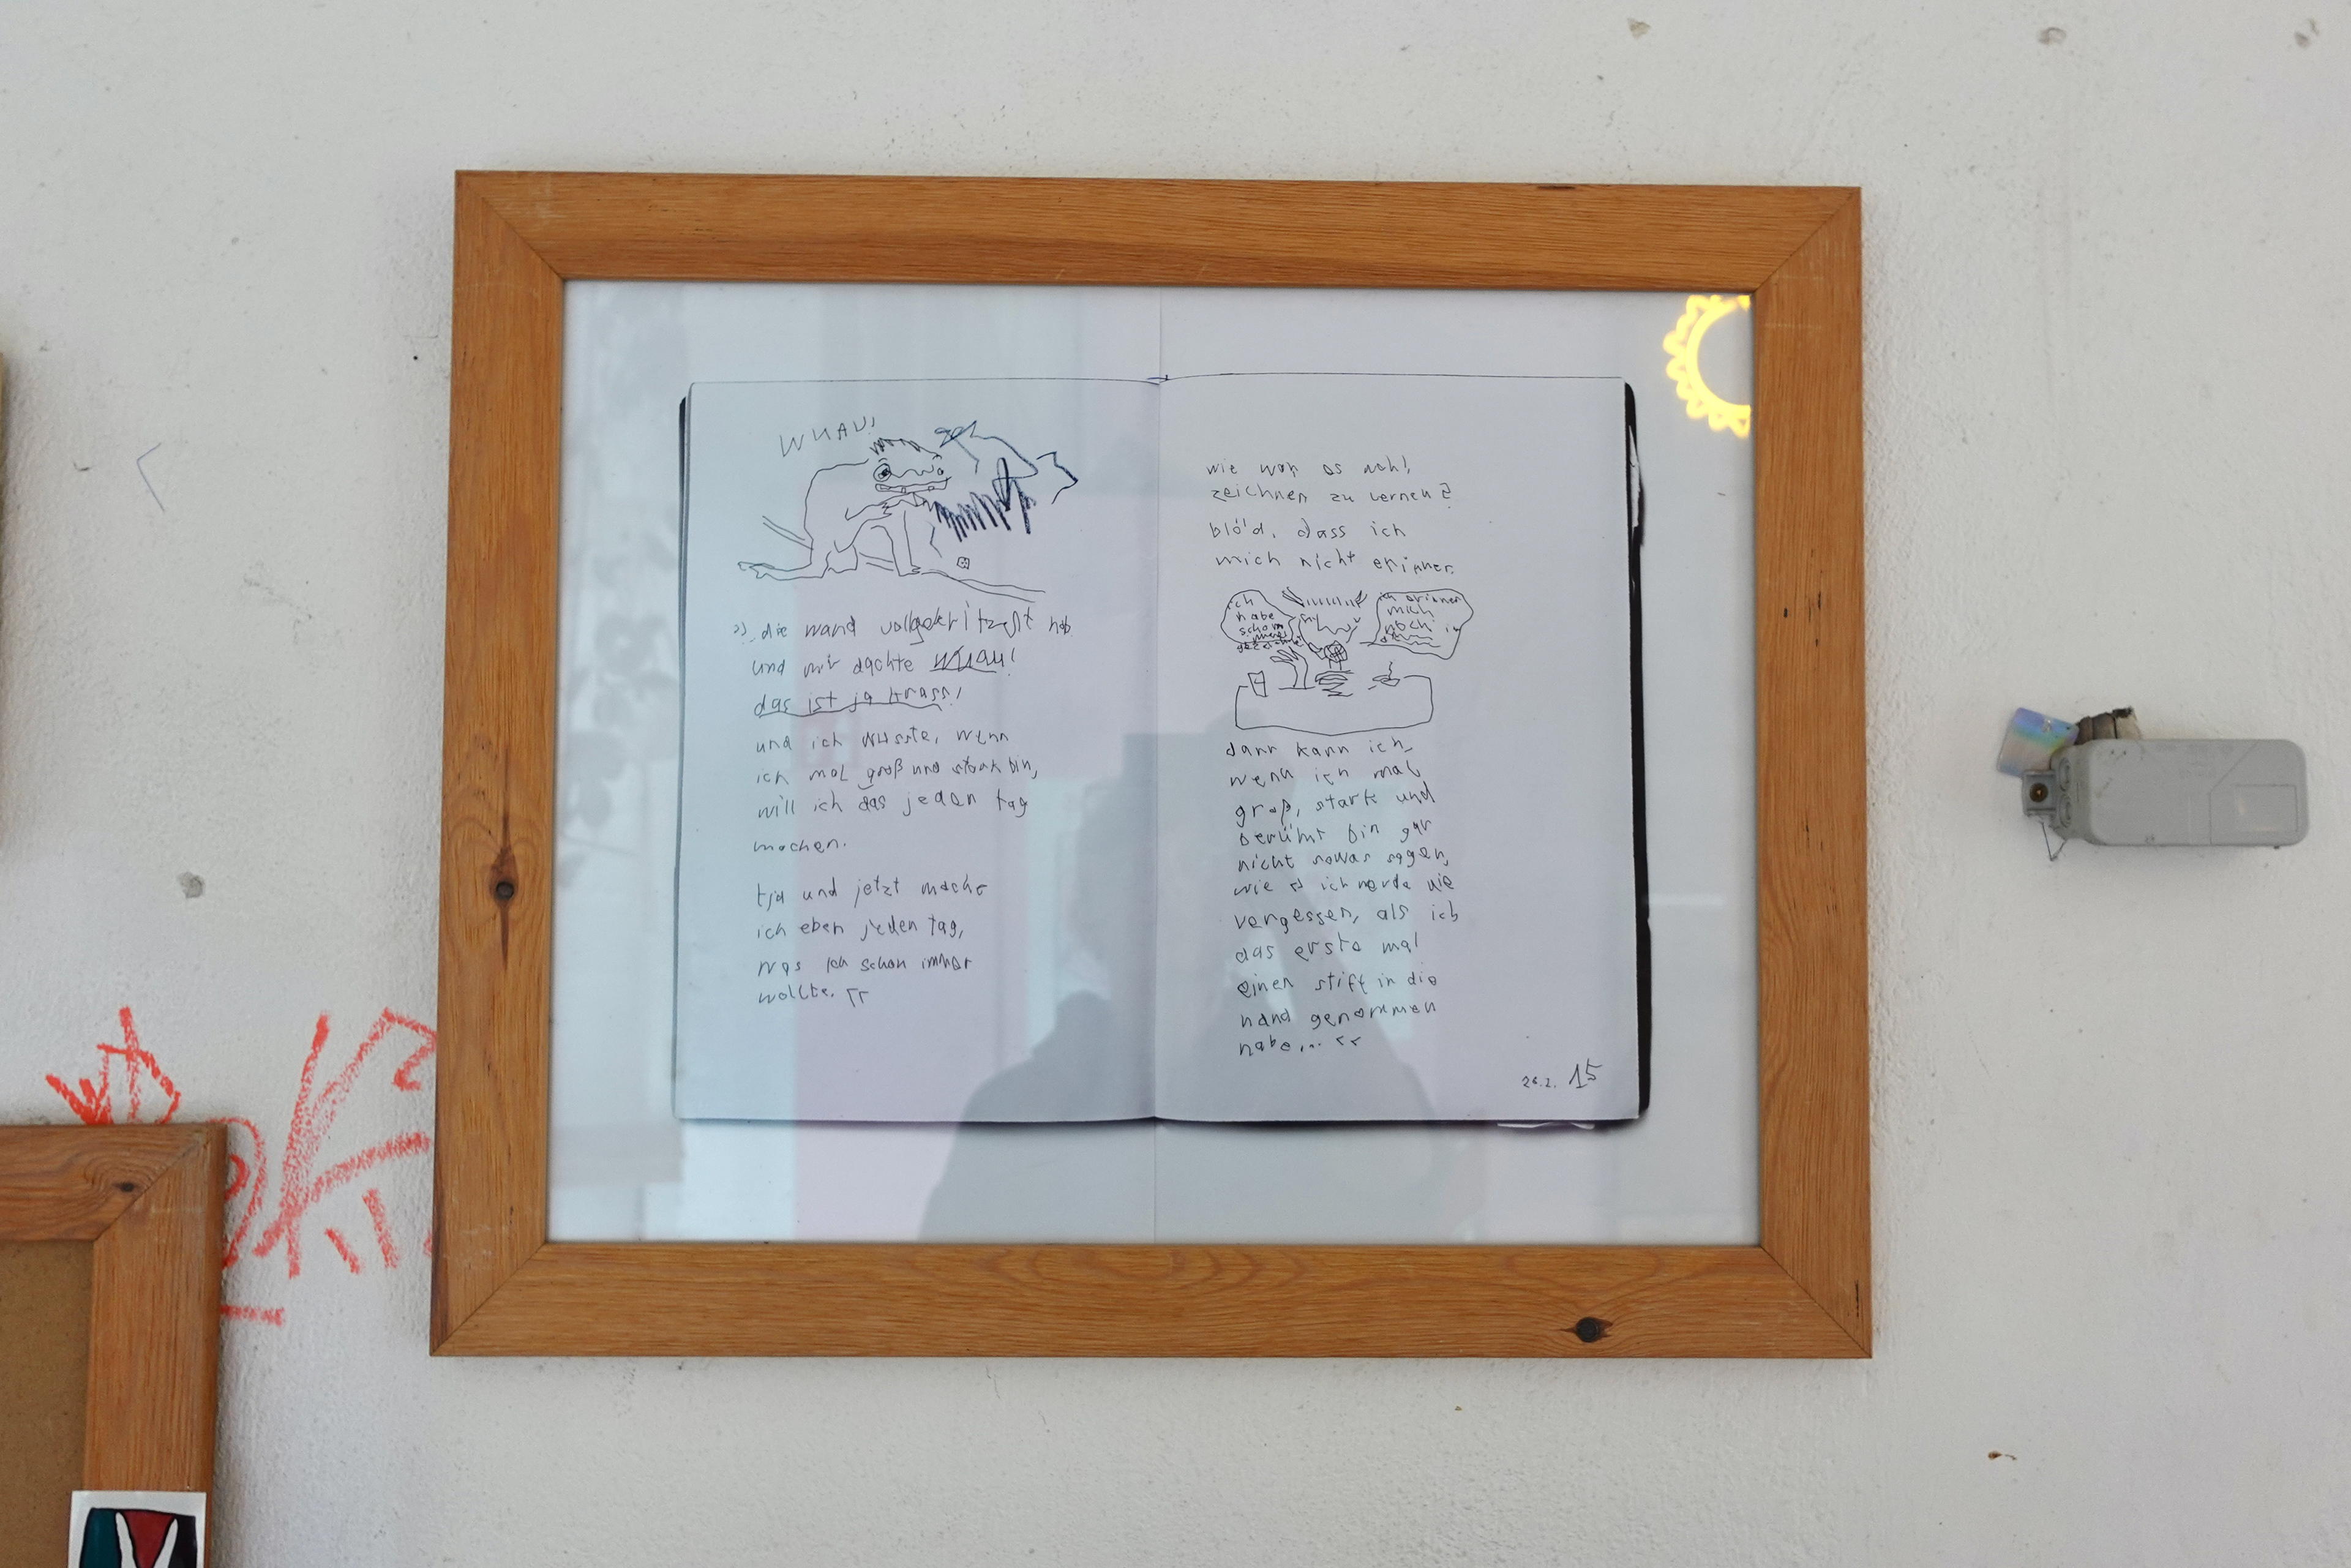 WUAU!
die wand vollgekritzelt hab
und mir dachte wuau!
das ist ja krass!
und ich wusste, wenn
ich mal groß und stark bin,
will ich das jeden tag
machen.
tja und jetzt mache
ich eben jeden tag,
was ich schon immer
wollte. <<
wie war es wohl,
zeichnen zu lernen?
blöd, dass ich
mich nicht erinner.
ich
habe
schon
immer
gezeichnet
ich erinner
mich
noch
dann kann ich,
wenn ich mal
groß, stark und
berümt bin gar
nicht sowas sagen,
wie >> ich werde nie
vergessen, als ich
das erste mal
einen stift in die
hand genommen
habe... <<
26.2. 15